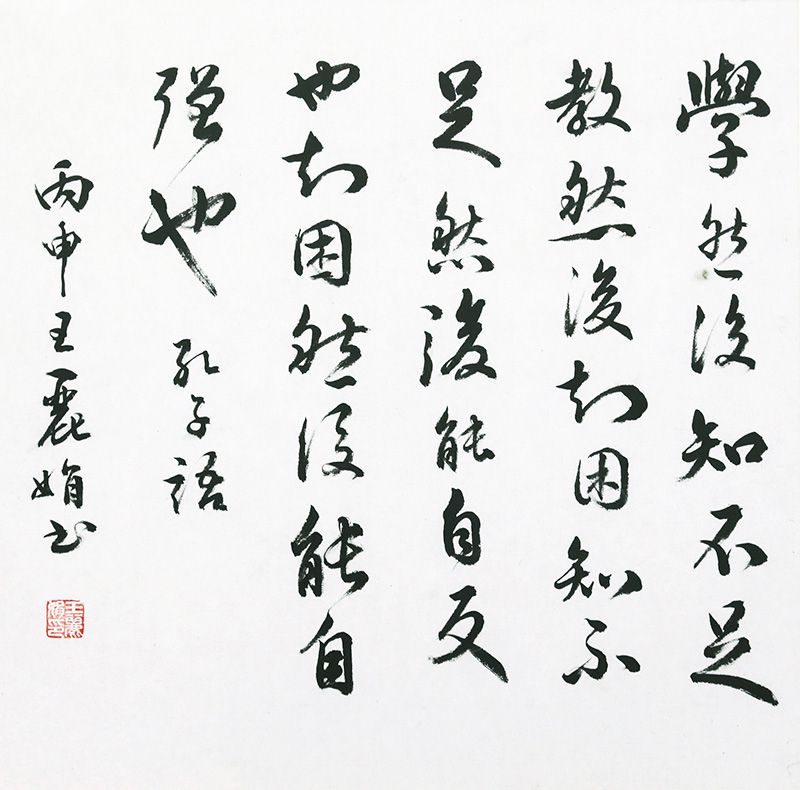 學然後知不足
教然後知困知不
足然後能自反
也知困然後能自
强也 孔子語
丙申王麗娟书
王麗娟印